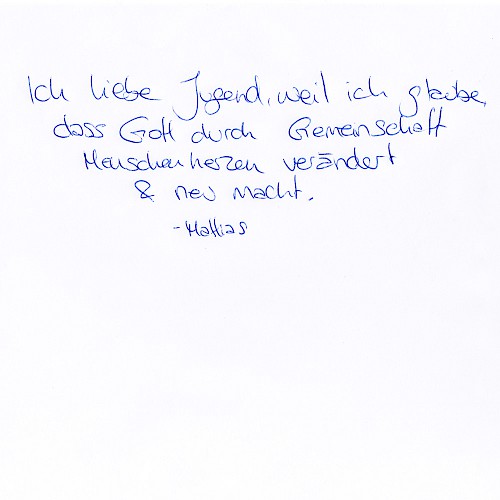 Ich liebe Jugend, weil ich glaube,
dass Gott durch Gemeinschaft
Menschenherzen verändert
& neu macht.
- Mattias